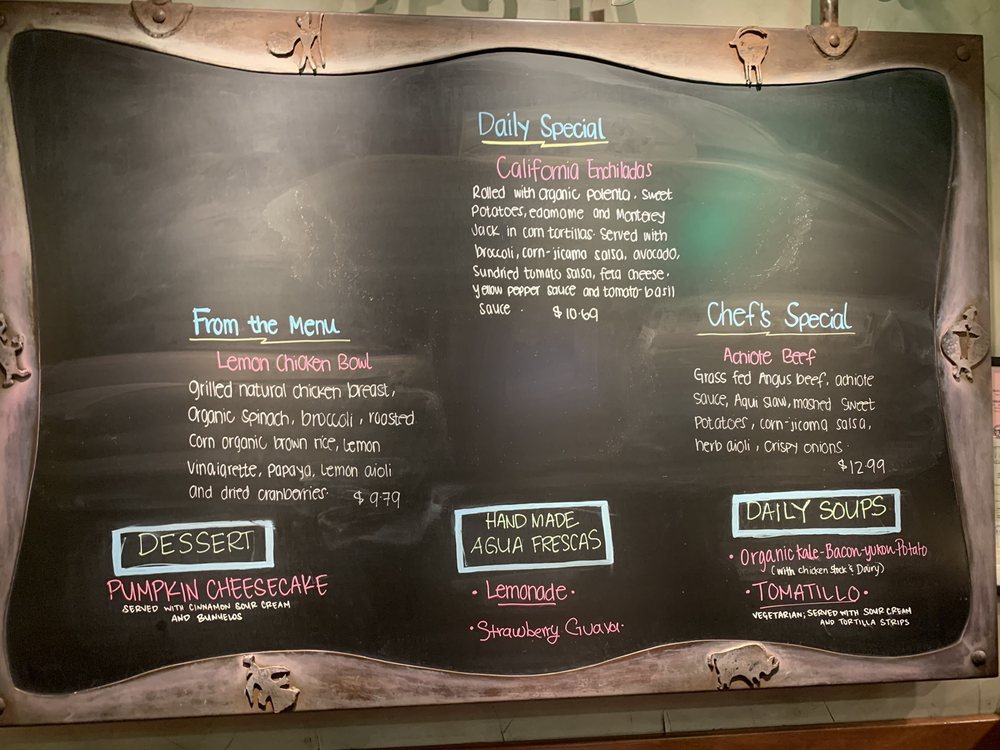 Daily Special
California Enchiladas
Rolled with organic polenta, sweet
potatoes, edamame and Monterey
Jack in corn tortillas. Served with
broccoli, corn-jicama salsa, avocado,
Sundried tomato salsa, feta cheese.
yellow pepper sauce and tomato-basil
sauce. $10.69
From the Menu
Lemon Chicken Bowl
Grilled natural chicken breast,
Organic spinach, broccoli, roasted
Corn organic brown rice, Lemon
Vinaigrette, papaya, Lemon aioli
and dried cranberries. $9.79
Chef's Special
Achiote Beef
Grass fed Angus beef, achiote
sauce, Aqui slaw, mashed sweet
Potatoes, corn-jicama salsa,
herb aioli, crispy onions.
$12.99
DESSERT
PUMPKIN CHEESECAKE
SERVED WITH CINNAMON SOUR CREAM
AND BUNUELOS
HAND MADE
AGUA FRESCAS
• Lemonade •
• Strawberry Guava •
DAILY SOUPS
• Organic kale-Bacon-yukon-Potato
(with chicken stock & Dairy)
• TOMATILLO •
VEGETARIAN; SERVED WITH SOUR CREAM
AND TORTILLA STRIPS